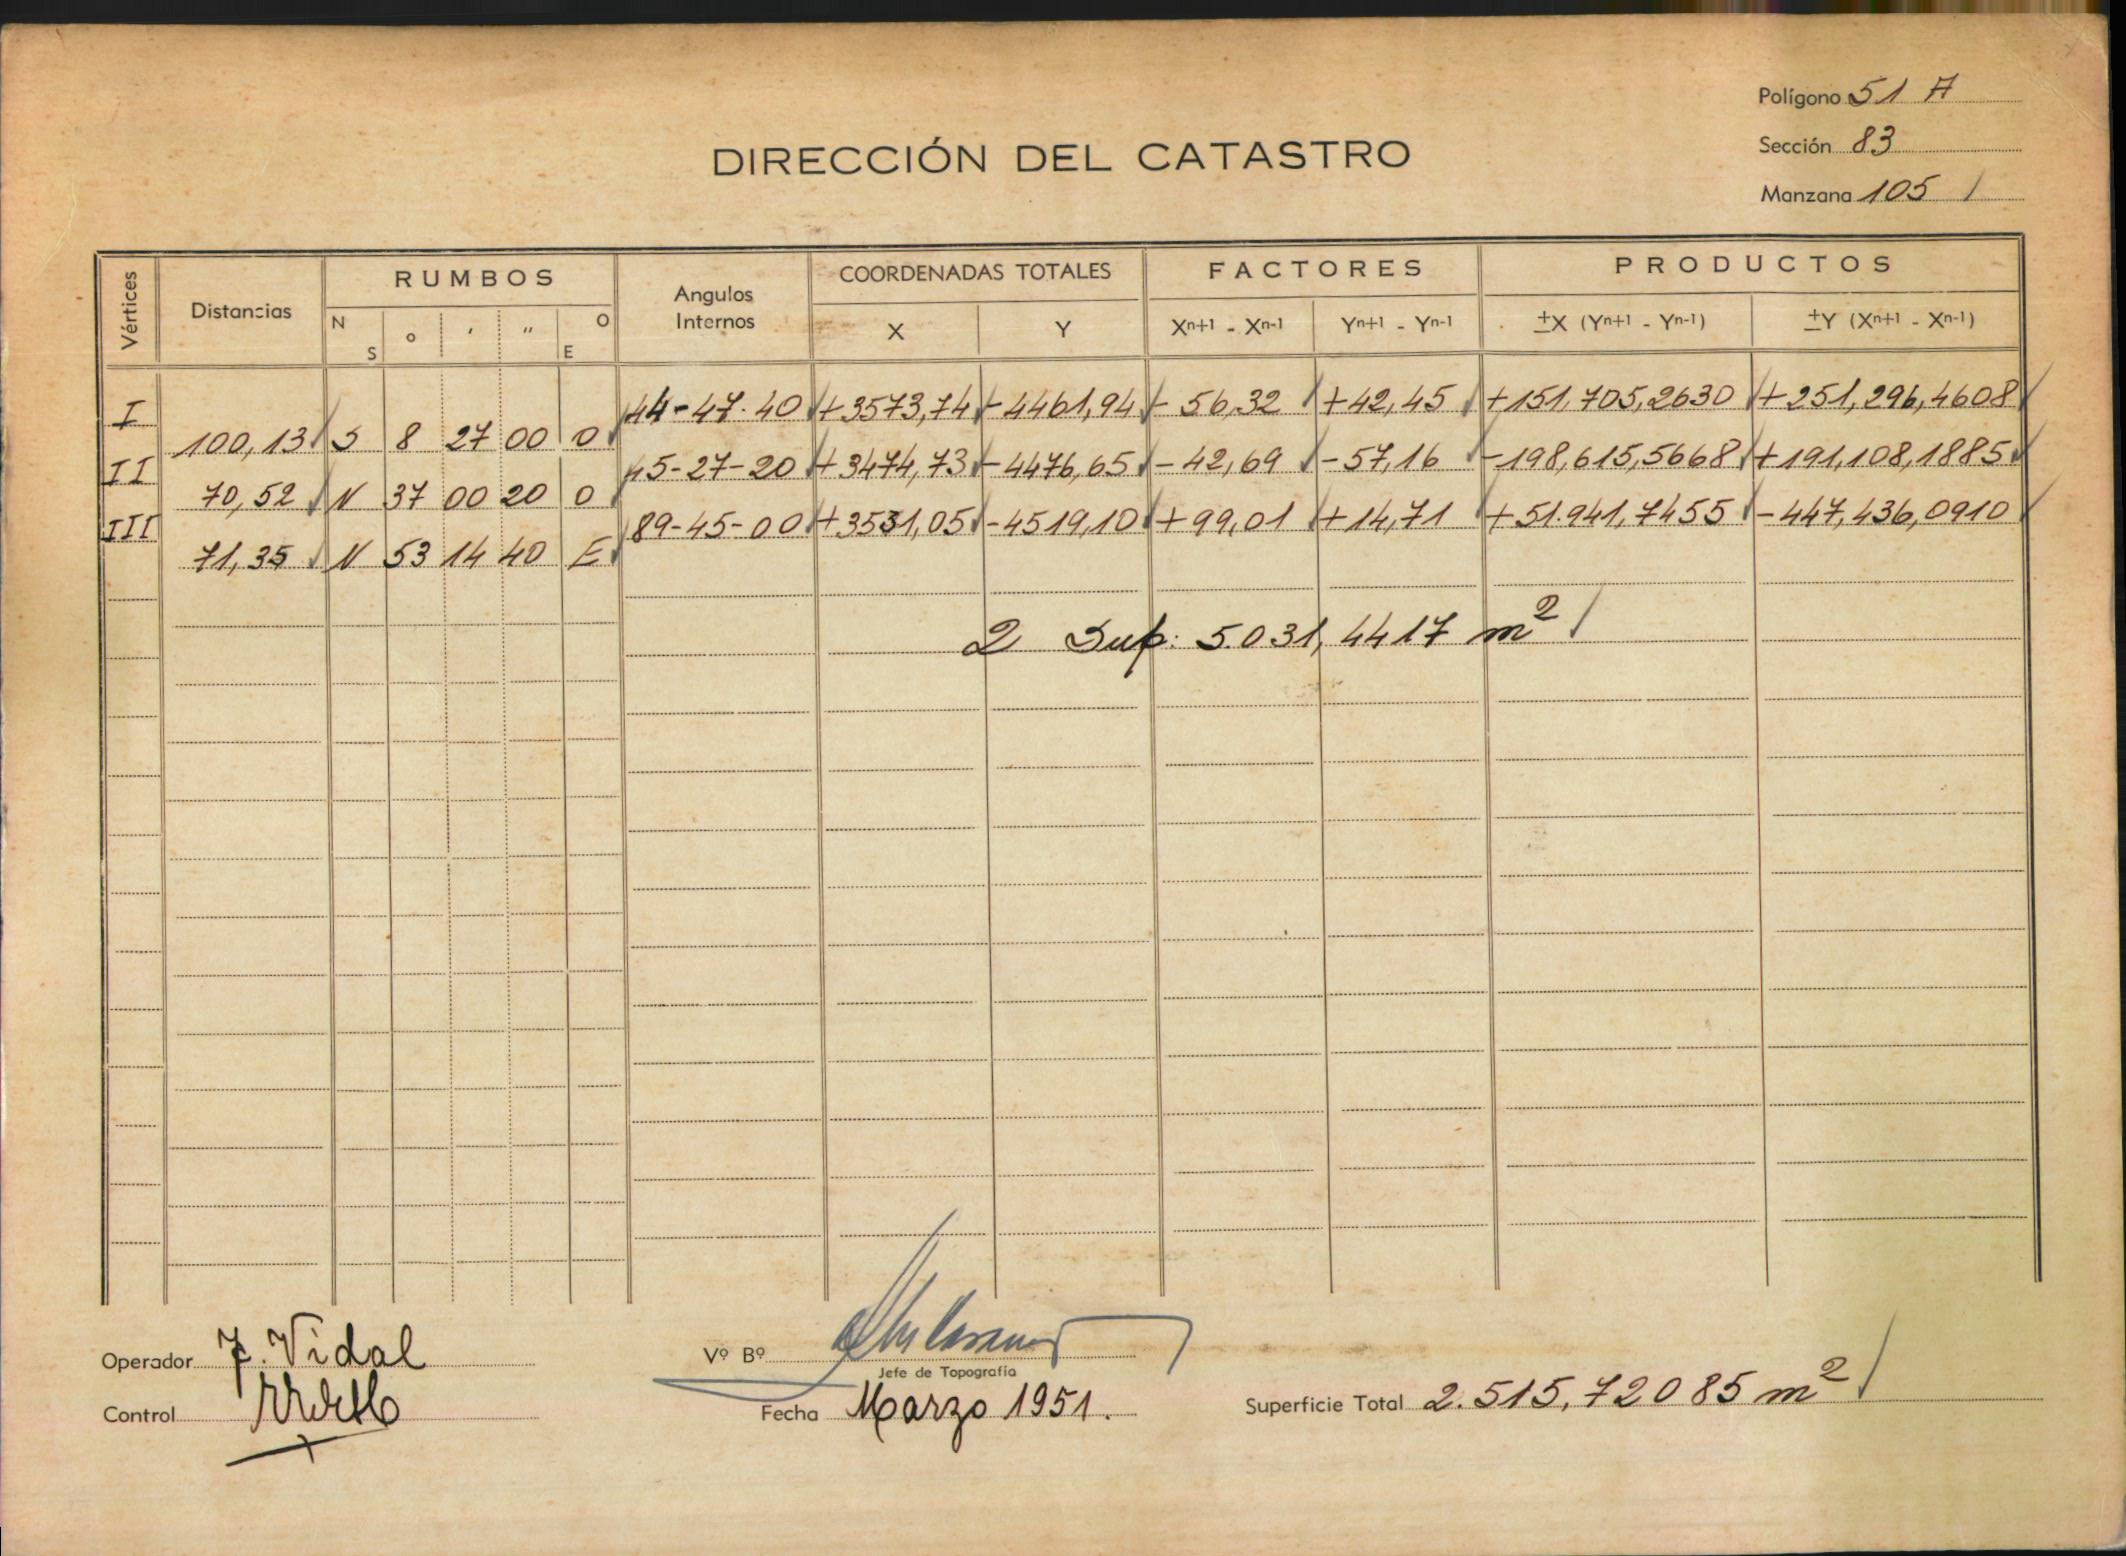 Polígono 51 A
Sección 83
Manzana 105
DIRECCIÓN DEL CATASTRO
Vértices Distancias RUMBOS Angulos Internos COORDENADAS TOTALES FACTORES PRODUCTOS
N S ° ' " O E X Y Xn+1 - Xn-1 Yn+1 - Yn-1 ±X (Yn+1 - Yn-1) ±Y (Xn+1 - Xn-1)
I 44-47-40 +3573,74 -4461,94 - 56,32 +42,45 +151,705,2630 +251,296,4608
100,13 S 8 27 00 O
II 45-27-20 +3474,73 -4476,65 -42,69 -57,16 -198,615,5668 +191,108,1885
70,52 N 37 00 20 O
III 89-45-00 +3531,05 -4519,10 +99,01 +14,71 +51.941,7455 -447,436,0910
71,35 N 53 14 40 E
2 Sup: 5.031,4417 m²
Operador F. Vidal
Vº Bº
Jefe de Topografía
Control
Fecha Marzo 1951.
Superficie Total 2.515,72085 m²